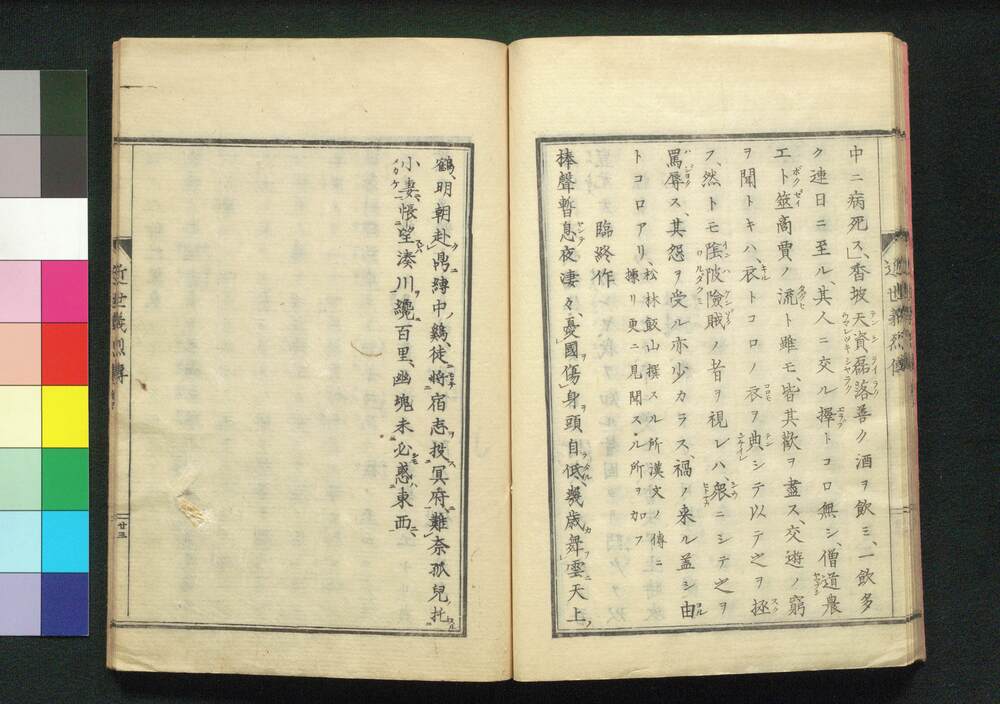 中ニ病死ス、香坡天資磊落善ク酒ヲ飲ミ、一飲多
ク連日ニ至ル、其人ニ交ル擇トコロ無シ、僧道農
工ト筮商賈ノ流ト雖モ、皆其歡ヲ盡ス、交遊ノ窮
ヲ聞トキハ、衣トコロノ衣ヲ典シテ以テ之ヲ拯
フ、然トモ陰陂險賊ノ者ヲ視レハ、衆ニシテ之ヲ
罵辱ス、其怨ヲ受ル亦少カラス、禍ノ来ル盖シ由
トコロアリ、松林飯山撰スル所漢文ノ傳ニ
據リ更ニ見聞スル所ヲ加フ
臨終作
捧聲暫息夜凄々、憂國傷身頭自低、幾歳舞雲天上
鶴、明朝赴鼎縛中鷄、徒將宿志投冥府、難奈孤兒托
小妻、悵望湊川纔百里、幽塊未必惑東西、
近世義烈傳
近世義烈傳
廿三